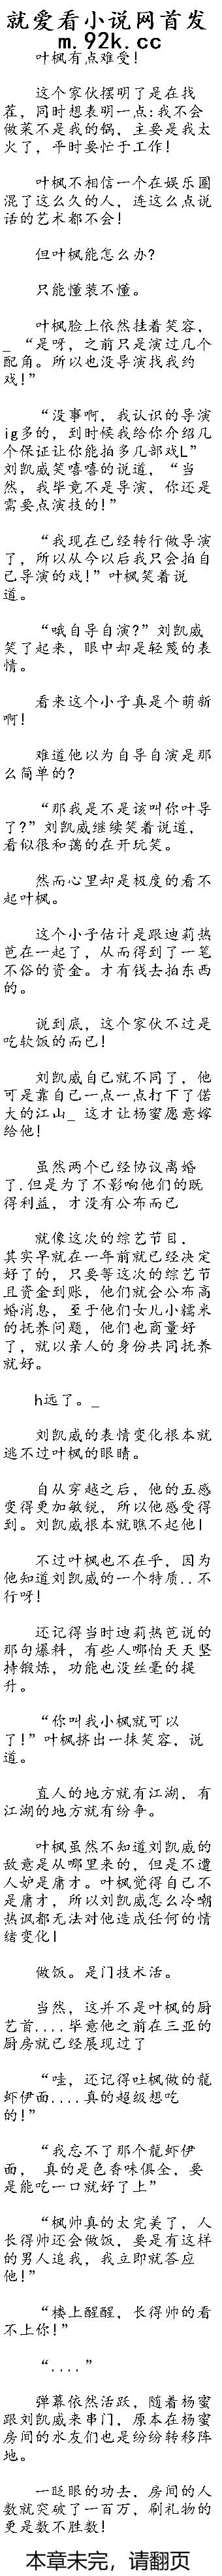 就爱看小说网首发
m.92k.cc
叶枫有点难受!
这个家伙摆明了是在找
茬,同时想表明一点:我不会
做菜不是我的锅,主要是我太
火了,平时要忙于工作!
叶枫不相信一个在娱乐圈
混了这么久的人,连这么点说
话的艺术都不会!
但叶枫能怎么办?
只能懂装不懂。
叶枫脸上依然挂着笑容,
_ “是呀,之前只是演过几个
配角。所以也没导演找我约
戏!”
“没事啊,我认识的导演
ig多的,到时候我给你介绍几
个保证让你能拍多几部戏L”
刘凯威笑嘻嘻的说道,“当
然,我毕竟不是导演,你还是
需要点演技的!”
“我现在已经转行做导演
了,所以从今以后我只会拍自
己导演的戏!”叶枫笑着说
道。
“哦自导自演?”刘凯威
笑了起来,眼中却是轻蔑的表
情。
看来这个小子真是个萌新
啊!
难道他以为自导自演是那
么简单的?
“那我是不是该叫你叶导
了?”刘凯威继续笑着说道,
看似很和蔼的在开玩笑。
然而心里却是极度的看不
起叶枫。
这个小子估计是跟迪莉热
芭在一起了,从而得到了一笔
不俗的资金。才有钱去拍东西
的。
说到底,这个家伙不过是
吃软饭的而已!
刘凯威自己就不同了,他
可是靠自己一点一点打下了偌
大的江山_ 这才让杨蜜愿意嫁
给他!
虽然两个已经协议离婚
了.但是为了不影响他们的既
得利益,才没有公布而已
就像这次的综艺节目.
其实早就在一年前就已经决定
好了的,只要等这次的综艺节
且资金到账,他们就会公布高
婚消息,至于他们女儿小糯米
的抚养问题,他们也商量好
了,就以亲人的身份共同抚养
就好。
h远了。_
刘凯威的表情变化根本就
逃不过叶枫的眼睛。
自从穿越之后,他的五感
变得更加敏锐,所以他感受得
到。刘凯威根本就瞧不起他l
不过叶枫也不在乎,因为
他知道刘凯威的一个特质..不
行呀!
还记得当时迪莉热芭说的
那句爆料,有些人哪怕天天坚
持锻炼,功能也没丝毫的提
升。
“你叫我小枫就可以
了!”叶枫挤出一抹笑容,说
道。
直人的地方就有江湖,有
江湖的地方就有纷争。
叶枫虽然不知道刘凯威的
敌意是从哪里来的,但是不遭
人妒是庸才。叶枫觉得自己不
是庸才,所以刘凯威怎么冷嘲
热讽都无法对他造成任何的情
绪变化l
做饭。是门技术活。
当然,这并不是叶枫的厨
艺首....毕意他之前在三亚的
厨房就已经展现过了
“哇,还记得吐枫做的龍
虾伊面....真的超级想吃
的!”
“我忘不了那个龍虾伊
面, 真的是色香味俱全,要
是能吃一口就好了上”
“枫帅真的太完美了,人
长得帅还会做饭,要是有这样
的男人追我,我立即就答应
他!”
“楼上醒醒,长得帅的看
不上你!”
“....”
弹幕依然活跃,随着杨蜜
跟刘凯威来串门,原本在杨蜜
房间的水友们也是纷纷转移阵
地。
一眨眼的功去,房间的人
数就突破了一百万,刷礼物的
更是数不胜数!
本章未完,请翻页